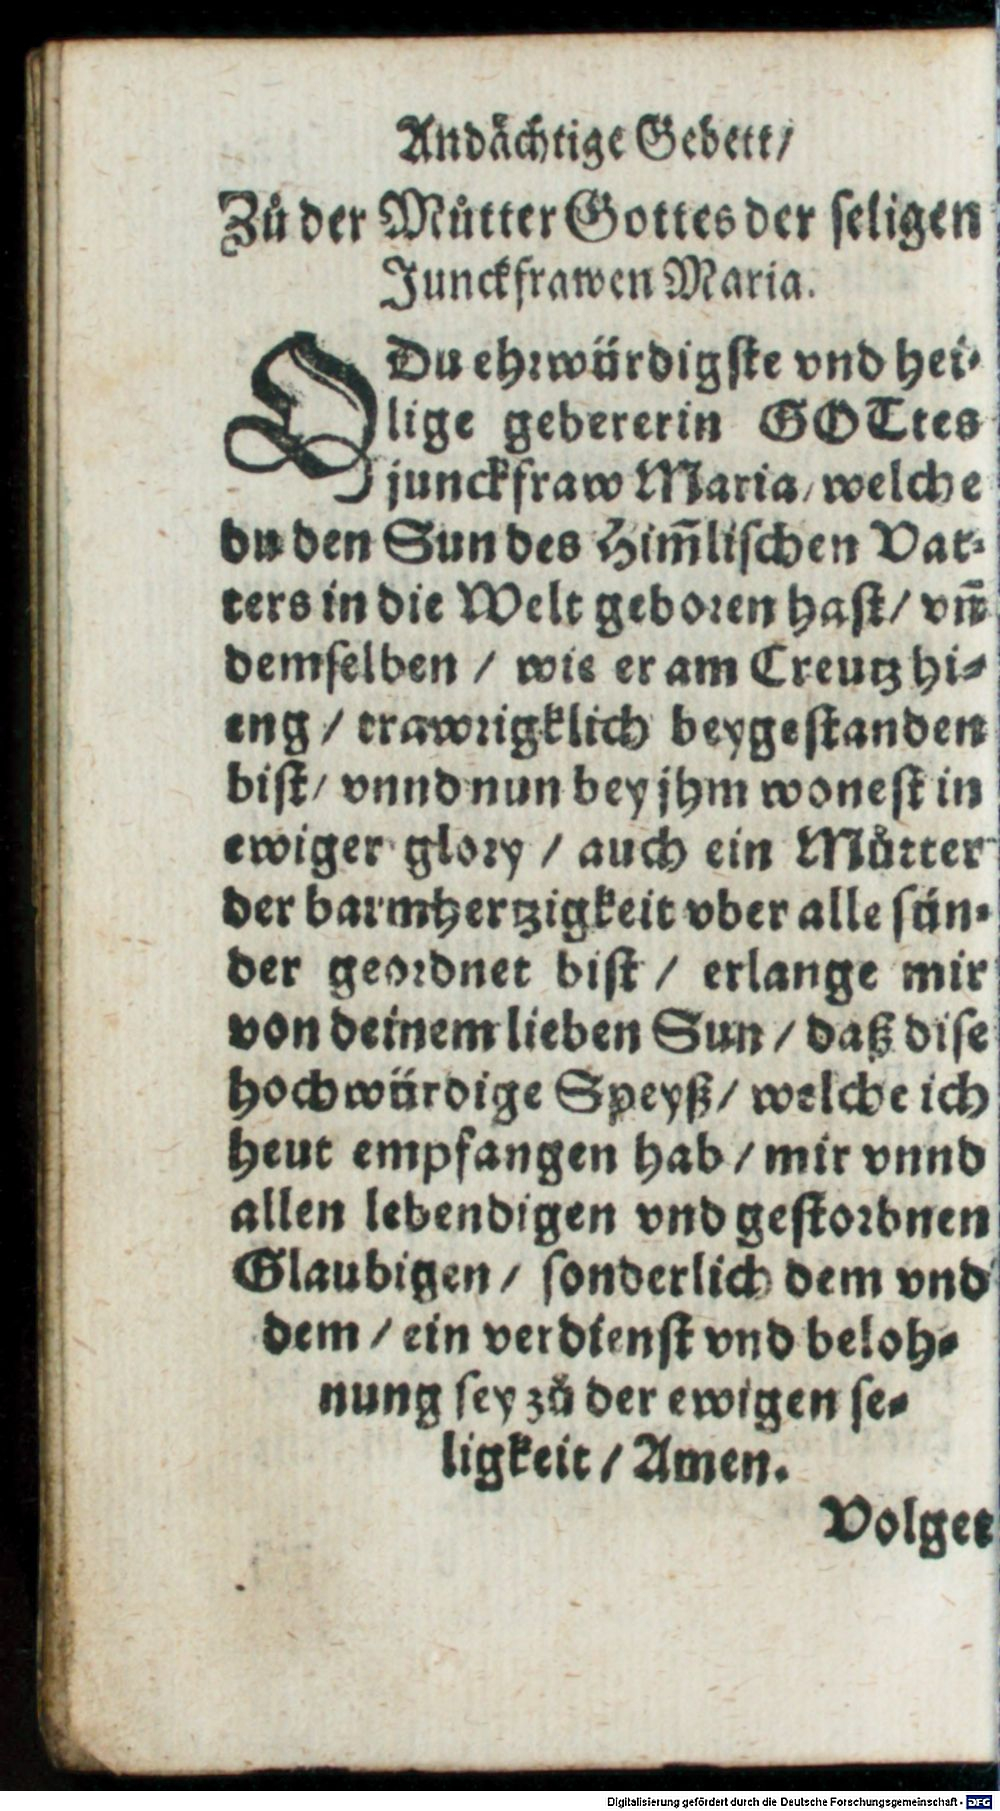 Andächtige Gebett/
Zů der Můtter Gottes der seligen
Junckfrawen Maria.
O Du ehrwürdigste vnd hei-
lige gebererin GOTtes
junckfraw Maria/ welche
du den Sun des Him̃lischen Vat-
ters in die Welt geboren hast/ vñ
demselben / wie er am Creutz hi-
eng / trawrigklich beygestanden
bist/ vnnd nun bey jhm wonest in
ewiger glory / auch ein Můtter
der barmhertzigkeit vber alle sün-
der geordnet bist / erlange mir
von deinem lieben Sun / daß dise
hochwürdige Speyß/ welche ich
heut empfangen hab / mir vnnd
allen lebendigen vnd gestorbnen
Glaubigen / sonderlich dem vnd
dem / ein verdienst vnd beloh-
nung sey zů der ewigen se-
ligkeit / Amen.
Volget
Digitalisierung gefördert durch die Deutsche Forschungsgemeinschaft - DFG